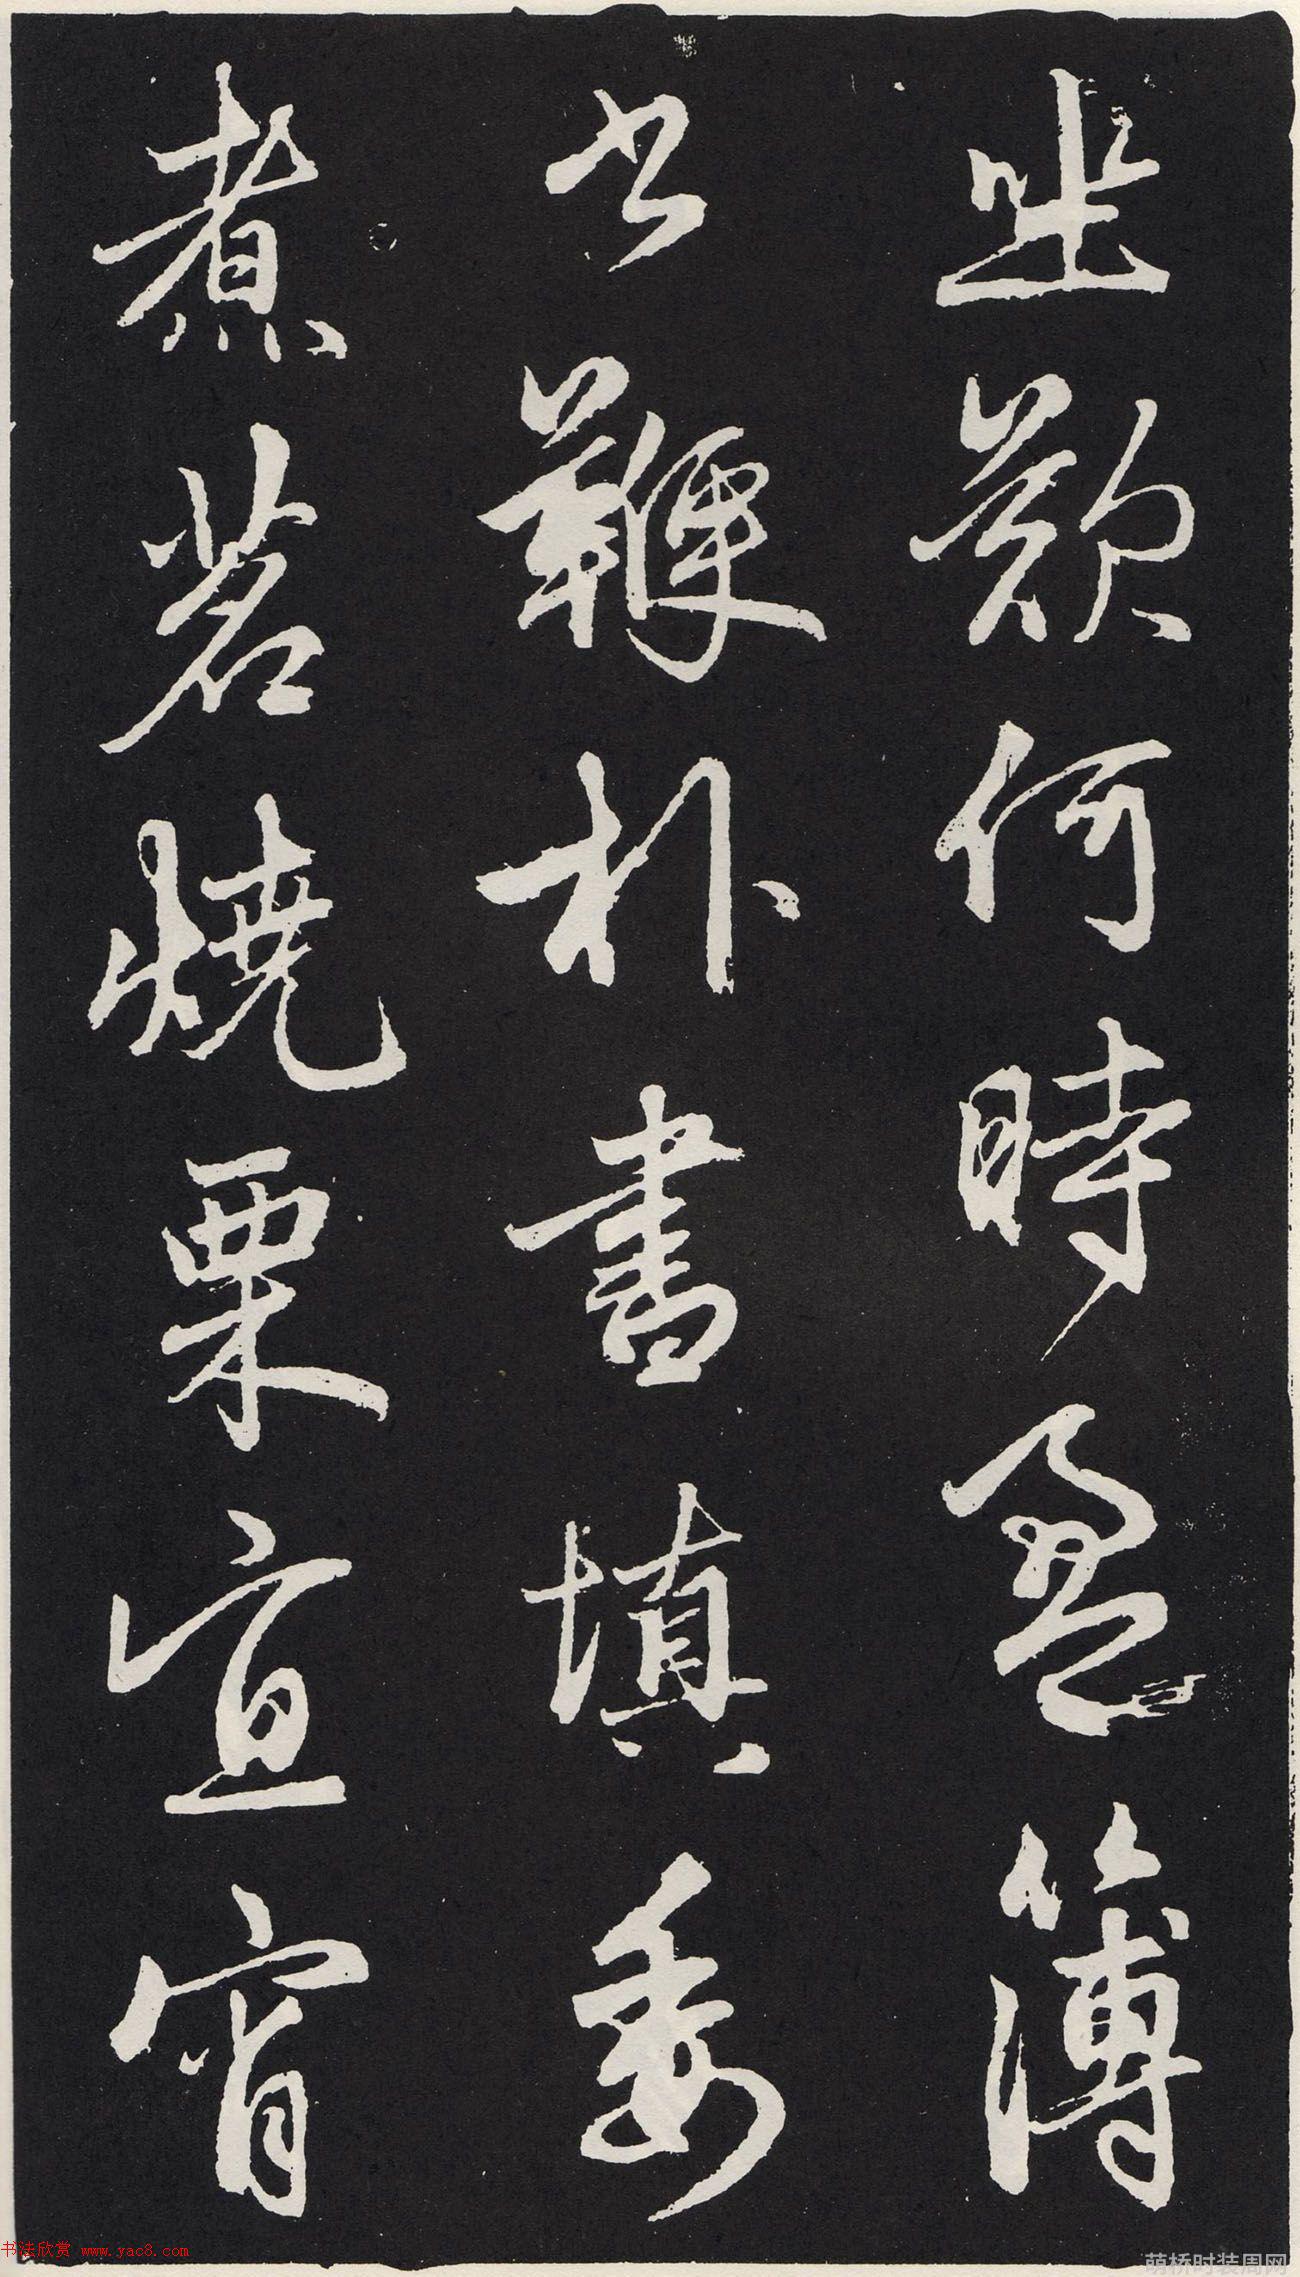 何時盈簿
书鞭朴晝填委
煮茗燒栗宜宵
书法欣赏 www.yac8.com
萌桥时装周网